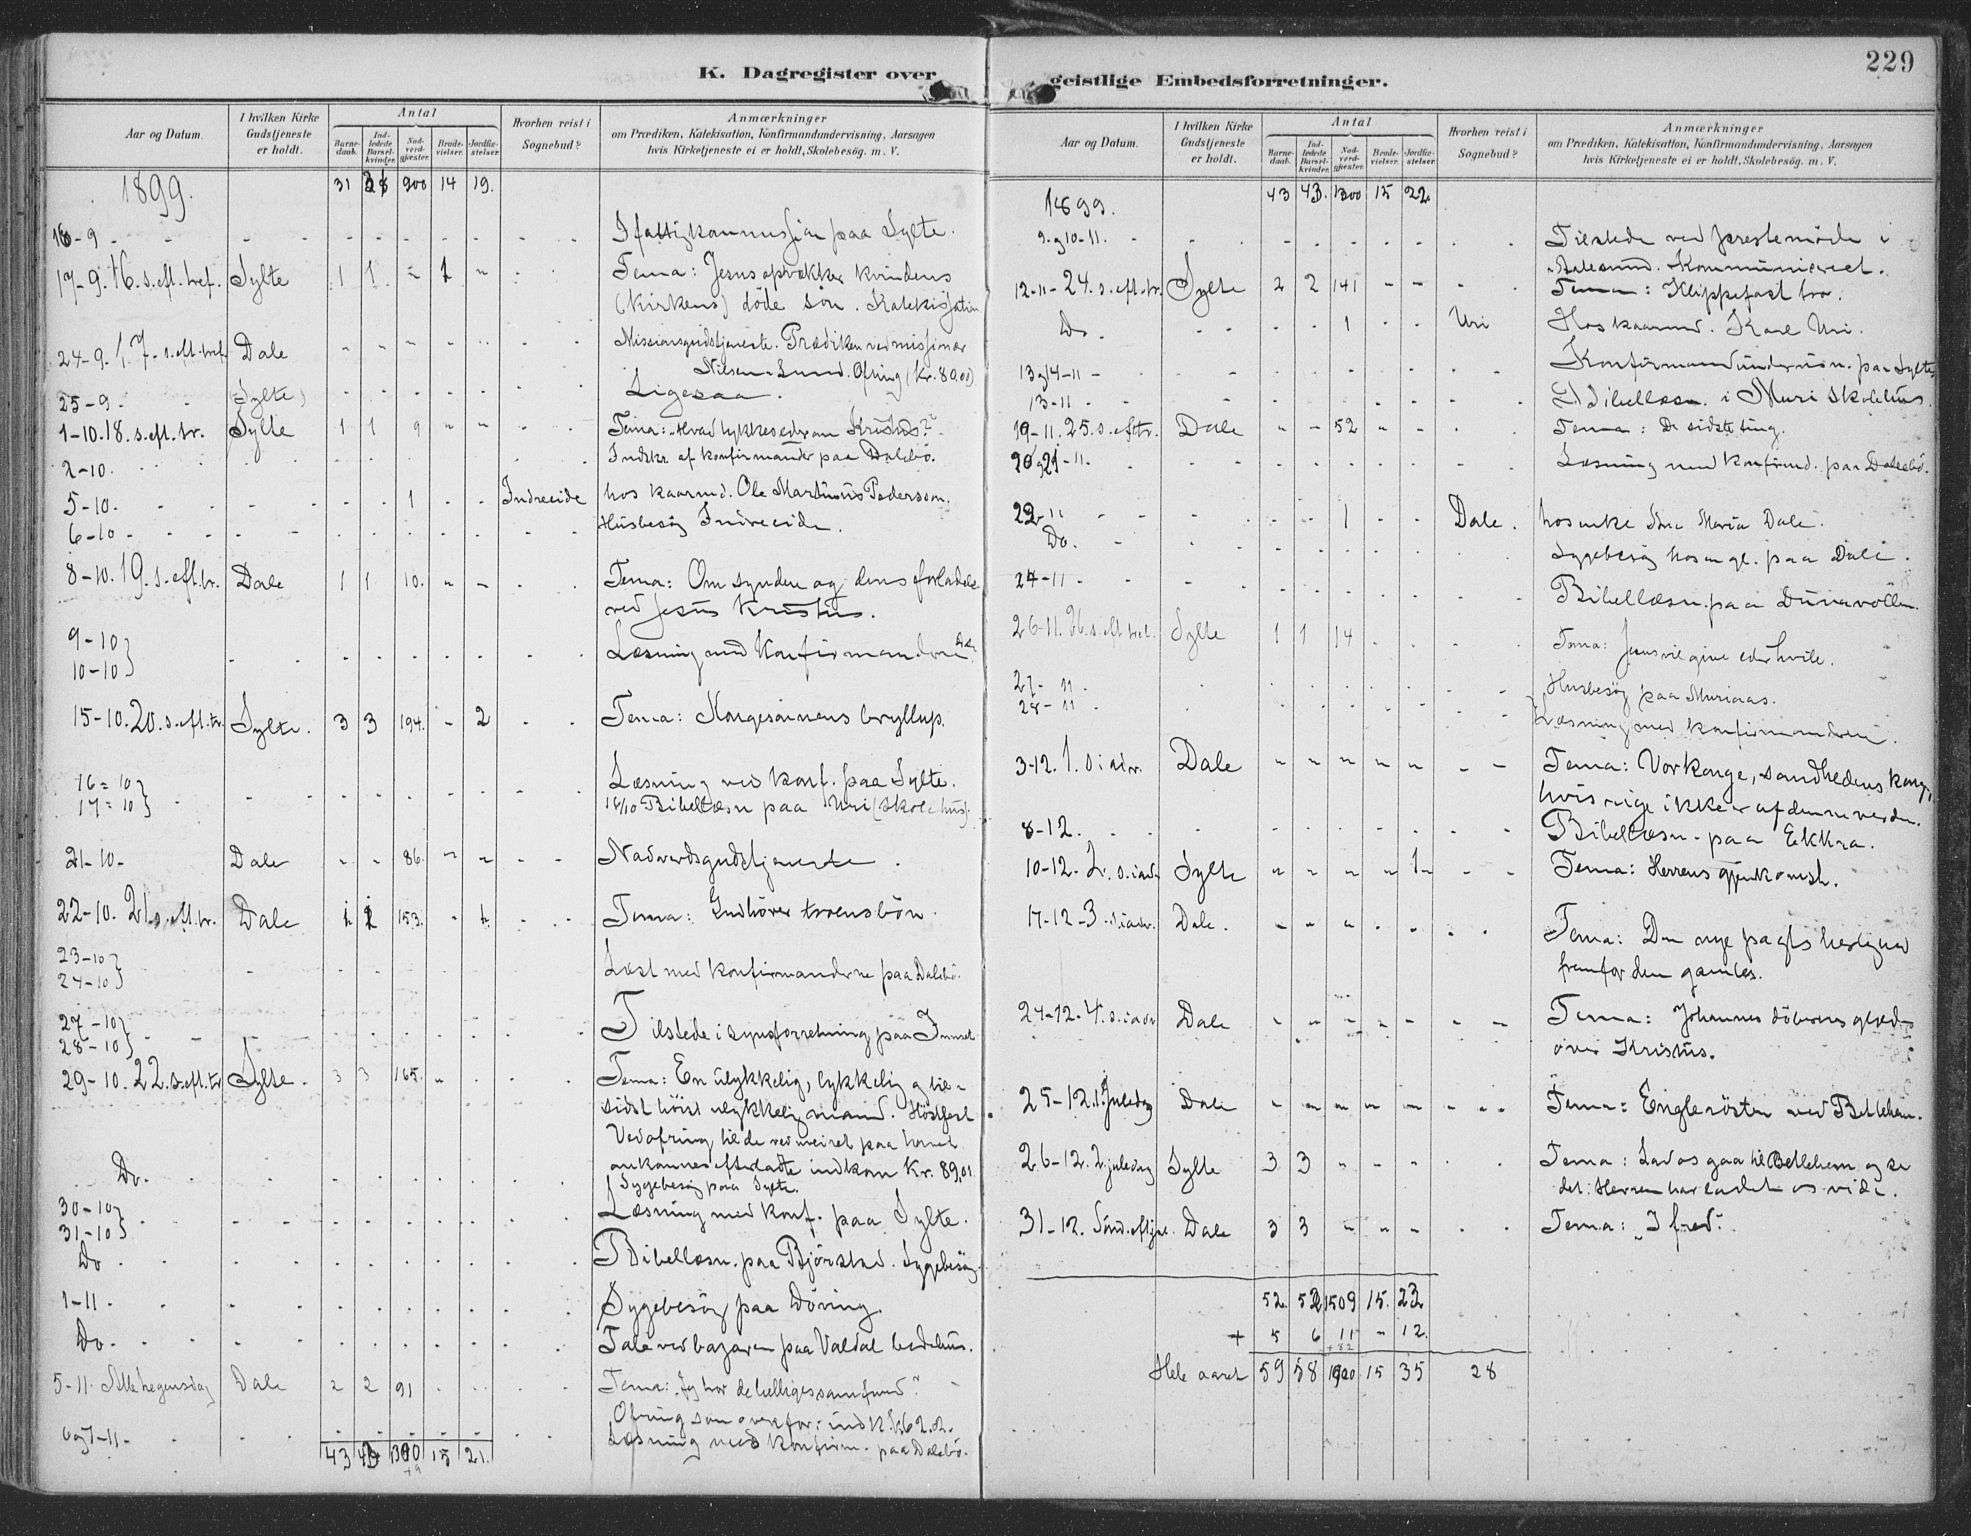 K. Dagregister over geistlige Embedsforretninger.
229
Aar og Datum.
I hvilken Kirke Gudstjeneste er holdt.
Antal
Barne-daab.
Ind-ledede Barsel-kvinder.
Nad-verd-gjester.
Brude-vielser.
Jordfæ-stelser.
Hvorhen reist i Sognebud?
Anmærkninger
om Prædiken, Katekisation, Konfirmandundervisning, Aarsagen
hvis Kirketjeneste ei er holdt, Skolebesøg. m. V.
1899. 31 900 14 19.
16-9 I fattigkommission paa Sylte.
17-9. 16. s. eft. tref. Sylte 1 1 - 1 - Tema: Jesus opvækker kvindens
(Kirkens) døde søn. Katekisation
24-9. 17. s. eft. tref. Dale Missionsgudstjeneste. Prædiken ved missionær
Nilsen-Lund. Ofring (Kr. 80,00)
25-9. (Sylte) Ligesaa.
1-10. 18. s. eft. tr. Sylte 1 1 9 - - Tema: "Hvad tykkes eder om Kristus?"
2-10. Indskr. af konfirmander paa Dalebø.
5-10. 1 Indreeide hos kaarmd. Ole Martinus Pederson.
6-10 Husbesøg Indreeide.
8-10. 19. s. eft. tr. Dale 1 1 10. - - Tema: Om synden og dens forladelse
ved Jesus Kristus.
9-10 }
10-10 } Læsning med Konfirmanderne
15-10. 20. s. eft. tr. Sylte. 3 3 194. - 2 Tema: Kongesønnens bryllup.
16-10 }
17-10 } Læsning ved konf. paa Sylte.
18/10 Bibellæsn paa Uri (Skolehus).
21-10- Dale - - 86. - - Nadverdsgudstjeneste.
22-10. 21. s. eft. tr. Dale 153. - Tema: Gud hører troens bøn.
23-10 }
24-10 } Læst med konfirmanderne paa Dalebø.
27-10 }
28-10 } Tilstede i synsforretning paa
29-10. 22. s. eft. tr Sylte. 3 3 165. - Tema: En ulykkelig, lykkelig og til-
sidst høist ulykkelig mand. Høstfest
Ved ofring til de ved uveiret paa havet
omkomnes efterladte indkom Kr. 89,01.
Do. Sygebesøg paa Sylte.
30-10 }
31-10 } Læsning med konf. paa Sylte.
Do Bibellæsn. paa Bjørstad. Sygebesøg.
1-11. Sygebesøg paa Døving.
Do. Tale ved bazaren paa Valdal bedehus.
5-11. Allehegensdag Dale 2 2 91 Tema: "Jeg tror de helliges samfund"
Ofring som ovenfor: indk. Kr. 62.02.
6 og 7-11- Læsning med konfirm. paa Dalebø.
43 1300 15 21.
+9
Aar og Datum.
I hvilken Kirke Gudstjeneste er holdt.
Antal
Barne-daab.
Ind-ledede Barsel-kvinder.
Nad-verd-gjester.
Brude-vielser.
Jordfæ-stelser.
Hvorhen reist i Sognebud?
Anmærkninger
om Prædiken, Katekisation, Konfirmandundervisning, Aarsagen
hvis Kirketjeneste ei er holdt, Skolebesøg. m. V.
1899. 43 43. 1300 15 22
9. og 10-11. Tilstede ved prestemøde i
Aalesund. Kommuniceret.
12-11- 24. s. eft. tr. Sylte 2 2 141 - - Tema: Klippefast tro.
Do. 1 Uri Hos kaarmd. Karl Uri.
13 og 14-11 - Konfirmandundervisn. paa Sylte
13-11 - Bibellæsn. i Muri Skolehus.
19-11. 25. s. eftr. Dale - - 52 - - Tema: De sidste ting.
20 og 21-11. Læsning med konfirmd. paa Dalebø.
22-11 1 Dale. hos enke Maria Dale.
Do. Sygebesøg hos paa Dale.
24-11 - Bibellæsn. paa Dunavollen.
26-11. 26. s. eft. tref. Sylte 1 1 14 Tema: Jesus vil give eder hvile.
27-11. Husbesøg paa Muriaas.
28-11 Læsning med konfirmanderne.
3-12. 1. s. i adv. Dale - - - - - Tema: Vor konge, sandhedens konge,
hvis rige ikke er af denne verden.
8-12. Bibellæsn. paa Ekkra.
10-12. 2. s. i adv Sylte - - - - 1- Tema: Herrens gjenkomst.
17-12-3. s. i adv. Dale. Tema: Den nye pagts herlighed
fremfor den gamles.
24-12. 4. s. i adv Dale Tema: Johannes døberens glæde
over Kristus.
25-12. 1. Juledag Dale Tema: Englerøsten ved Betlehem.
26-12. 2. juledag Sylte 3 3 - - - Tema: Lad os gaa til Betlehem og se
det: Herren har ladet os vide.
31-12. Sønd. eft. jul. Dale 3 3 - - - Tema: "I fred".
52. 52 1509 15. 23
+ 5 6 11 - 12.
+82
Hele aaret 59 58 15 35 28